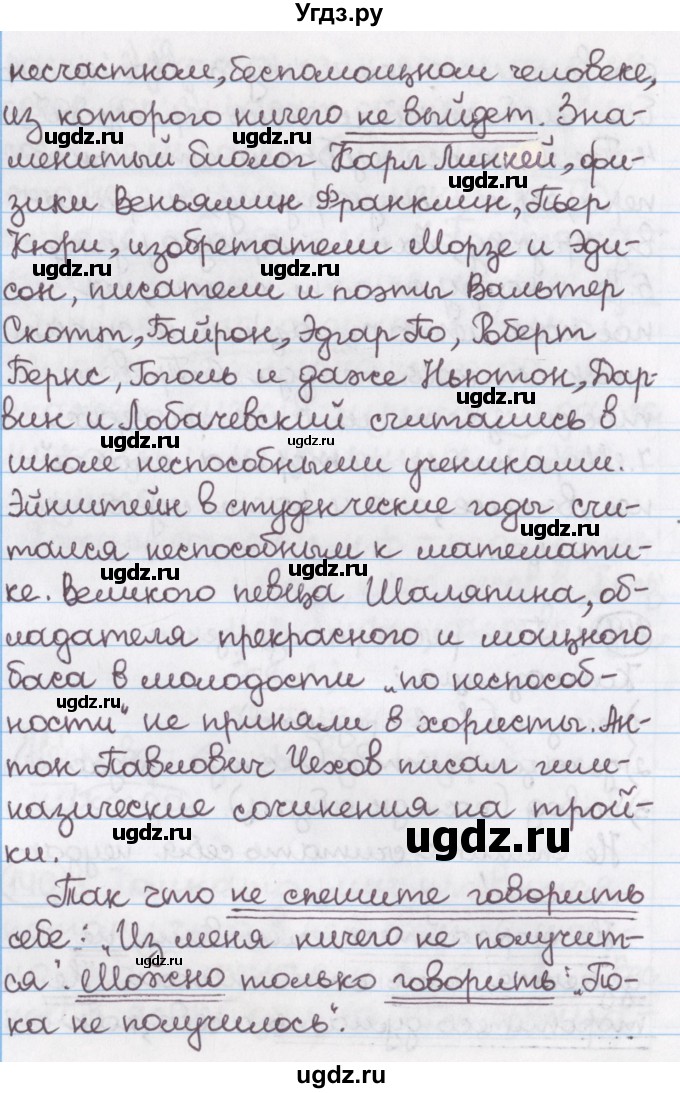 Угдз.ру
несчастном, беспомощном человеке,
из которого ничего не выйдет. Зна-
ugdz.ru ugdz.ru
менитый биолог Карл Линней, фи-
ugdz.ru
зики Веньямин Франклин, Пьер
Кюри, изобретатели Морзе и Эди-
ugdz.ru ugdz.ru
сон, писатели и поэты Вальтер
Скотт, Байрон, Эдгар По, Роберт
Бернс, Гоголь и даже Ньютон, Дар-
ugdz.ru
вин и Лобачевский считались в
ugdz.ru ugdz.ru
школе неспособными учениками.
Эйнштейн в студенческие годы счи-
ugdz.ru
тался неспособным к математи-
ugdz.ru ugdz.ru
ке. Великого певца Шаляпина, об-
ладателя прекрасного и мощного
баса в молодости „по неспособ-
ugdz.ru
ности“ не приняли в хористы. Ан-
тон Павлович Чехов писал гим-
назические сочинения на трой-
ugdz.ru ugdz.ru
ки.
Так что не спешите говорить
себе: „Из меня ничего не получит-
ugdz.ru
ся“. Можно только говорить: „По-
ка не получилось“.
ugdz.ru